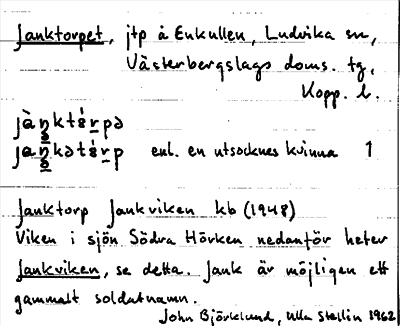 Janktorpet, jtp å Enkullen, Ludvika sn,
Västerbergslags doms. tg,
Kopp. l.
enl. en utsocknes kvinna 1
Janktorp Jankviken kb (1948)
Viken i sjön Södra Hörken nedanför heter
Jankviken, se detta. Jank är möjligen ett
gammalt soldatnamn.
John Björklund, Ulla Stellin 1962